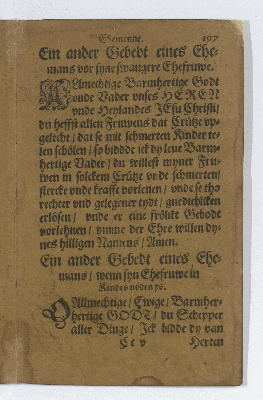 Ehemenne. 197
Ein ander Gebedt eines Ehe-
mans vor syne swangere Ehefruwe.
Allmechtige Barmhertige Godt
vnde Vader vnses HEREN
vnde Heylandes JEsu Christi/
du heffst allen Fruwens dat Crütze vp-
gelecht / dat se mit schmerten Kinder te-
len schölen / so biddde ick dy leue Barm-
hertige Vader / du willest myner Fru-
wen in solckem Crütze vnde schmerten/
stercke vnde krafft vorlenen / vnde se tho
rechter vnd gelegener tydt / gnedichliken
erlösen / vnde er eine frölike Gebodt
vorlehnen / vmme der Ehre willen dy-
nes hilligen Namens / Amen.
Ein ander Gebedt eines Ehe-
mans / wenn syn Ehefruwe in
Kindes nöden ys.
Allmechtige / Ewige / Barmher-
hertige GODT / du Schepper
aller Dinge / Ick bidde dy van
Cc v Herten